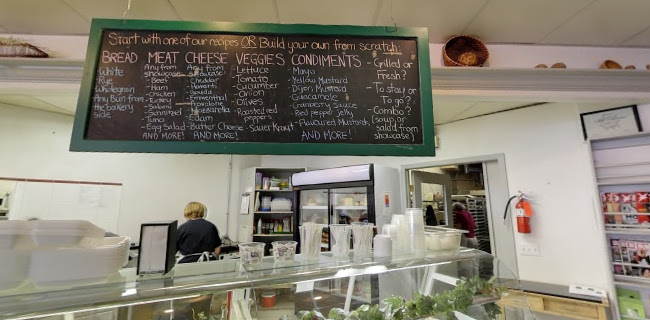 Start with one of our recipes OR Build your own from scratch:
BREAD MEAT CHEESE VEGGIES CONDIMENTS
White
Rye
Wholegrain
Any Bun from
the bakery
side
Any from
showcase
- Beef
- Ham
- Chicken
- Turkey
- Salami
- Schnitzel
- Tuna
- Egg Salad
AND MORE!
Any from
showcase
- Cheddar
- Havarti
- Gouda
- Emmenthal
- Provolone
- Mozzarella
- Edam
- Butter Cheese
AND MORE!
- Lettuce
- Tomato
- Cucumber
- Onion
- Olives
- Roasted red
peppers
- Sauer Kraut
- Mayo
- Yellow Mustard
- Dijon Mustard
- Guacamole
- Cranberry Sauce
- Red pepper Jelly
- Flavoured Mustards
AND MORE!
- Grilled or
Fresh?
- To stay or
To go?
- Combo?
(soup or
salad from
showcase)